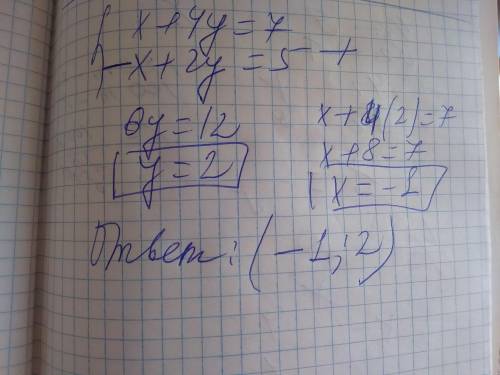 x+4y=7
-x+2y=5 +
6y=12
y=2
x+4(2)=7
x+8=7
x=-1
Ответ: (-1; 2)